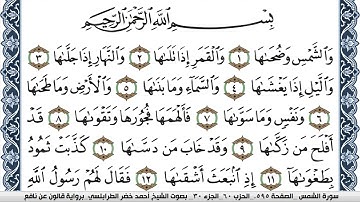 بِسْمِ اللَّهِ الرَّحْمَٰنِ الرَّحِيمِ
وَالشَّمْسِ وَضُحَىٰهَا ١ وَالْقَمَرِ إِذَا تَلَىٰهَا ٢ وَالنَّهَارِ إِذَا جَلَّىٰهَا ٣
وَالَّيْلِ إِذَا يَغْشَىٰهَا ٤ وَالسَّمَآءِ وَمَا بَنَىٰهَا ٥ وَالْأَرْضِ وَمَا طَحَىٰهَا
٦ وَنَفْسٍ وَمَا سَوَّىٰهَا ٧ فَأَلْهَمَهَا فُجُورَهَا وَتَقْوَىٰهَا ٨ قَدْ
أَفْلَحَ مَن زَكَّىٰهَا ٩ وَقَدْ خَابَ مَن دَسَّىٰهَا ١٠ كَذَّبَتْ ثَمُودُ
بِطَغْوَىٰهَا ١١ إِذِ انۢبَعَثَ أَشْقَىٰهَا ١٢ فَقَالَ لَهُمْ رَسُولُ اللَّهِ
سورة الشمس . الصفحة ٥٩٥ . الجزء ٣٠ . الحزب ٦٠ . بصوت الشيخ أحمد خضر الطرابلسي . برواية قالون عن نافع